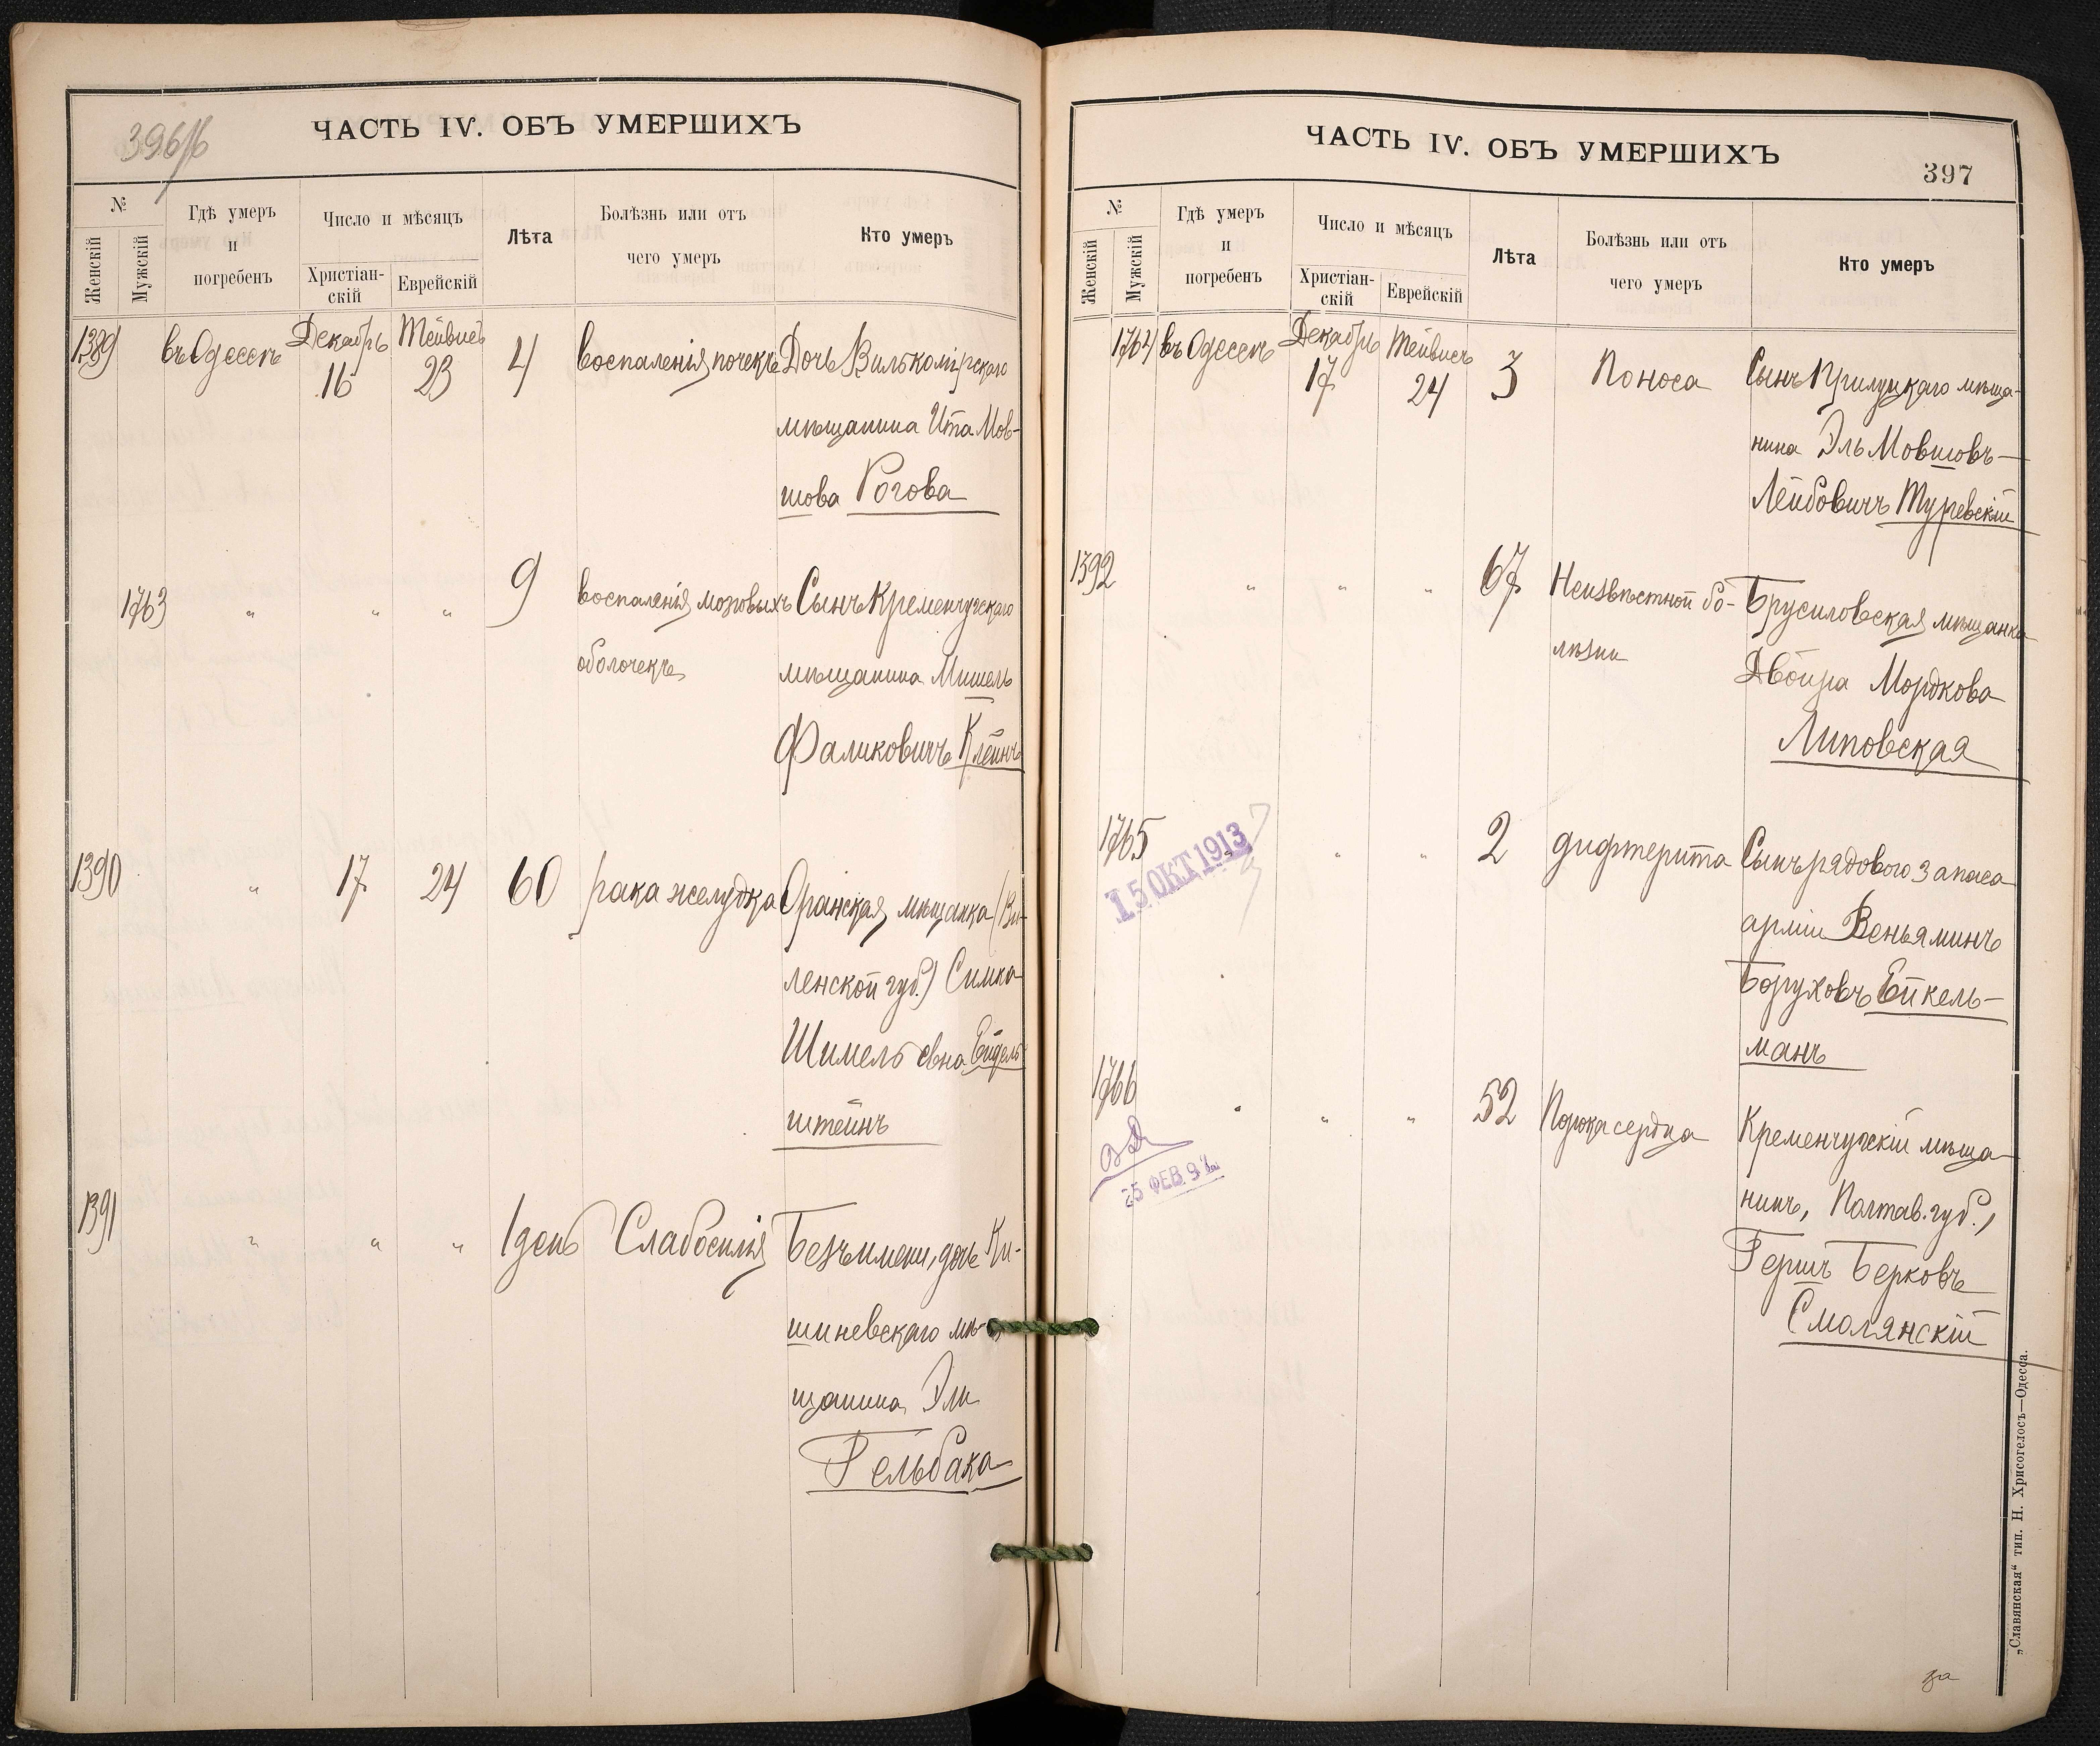 396/б
ЧАСТЬ IV. ОБЪ УМЕРШИХЪ
№
Женскій
Мужскій
Гдѣ умеръ
и
погребенъ
Число и мѣсяцъ
Христіан-
скій
Еврейскій
Лѣта
Болѣзнь или отъ
чего умеръ
Кто умеръ
1389 въ Одессѣ Декабрь 16 Тейвисъ 23 4 воспаленія почекъ Дочь Вилькомірскаго
мѣщанина Ита Мов-
шова Рогова
1763 " " " 9 воспаленія мозговыхъ Сынъ Кременчугскаго
оболочекъ мѣщанина Мишель
Фаликовичъ Клейнъ
1390 " 17 24 60 рака желудка Оранская мѣщанка (Ви-
ленской губ.) Симка
Шимельевна Ейдель
штейнъ
1391 " " " 1 день Слабосилія Безъ имени, дочь Ки-
шиневскаго мѣ-
щанина Эли
Гельбака
ЧАСТЬ IV. ОБЪ УМЕРШИХЪ
397
№
Женскій
Мужскій
Гдѣ умеръ
и
погребенъ
Число и мѣсяцъ
Христіан-
скій
Еврейскій
Лѣта
Болѣзнь или отъ
чего умеръ
Кто умеръ
1764 въ Одессѣ Декабрь 17 Тейвисъ 24 3 Поноса Сынъ Прилуцкаго мѣща-
нина Эль Мовшовъ-
Лейбовичъ Туревскій
1392 " " " 67 Неизвѣстной бо- Брусиловская мѣщанка
лѣзни Двойра Мордкова
Липовская
1765 " " " 2 дифтерита Сынъ рядового запаса
15 ОКТ 1913
арміи Веньяминъ
Боруховъ Ейкель-
манъ
1766 " " " 52 Порока сердца Кременчугскій мѣща-
25 ФЕВ 9
нинъ, Полтав. губ.,
Гершъ Берковъ
Смолянскій
„Славянская“ тип. Н. Хрисогелосъ—Одесса.